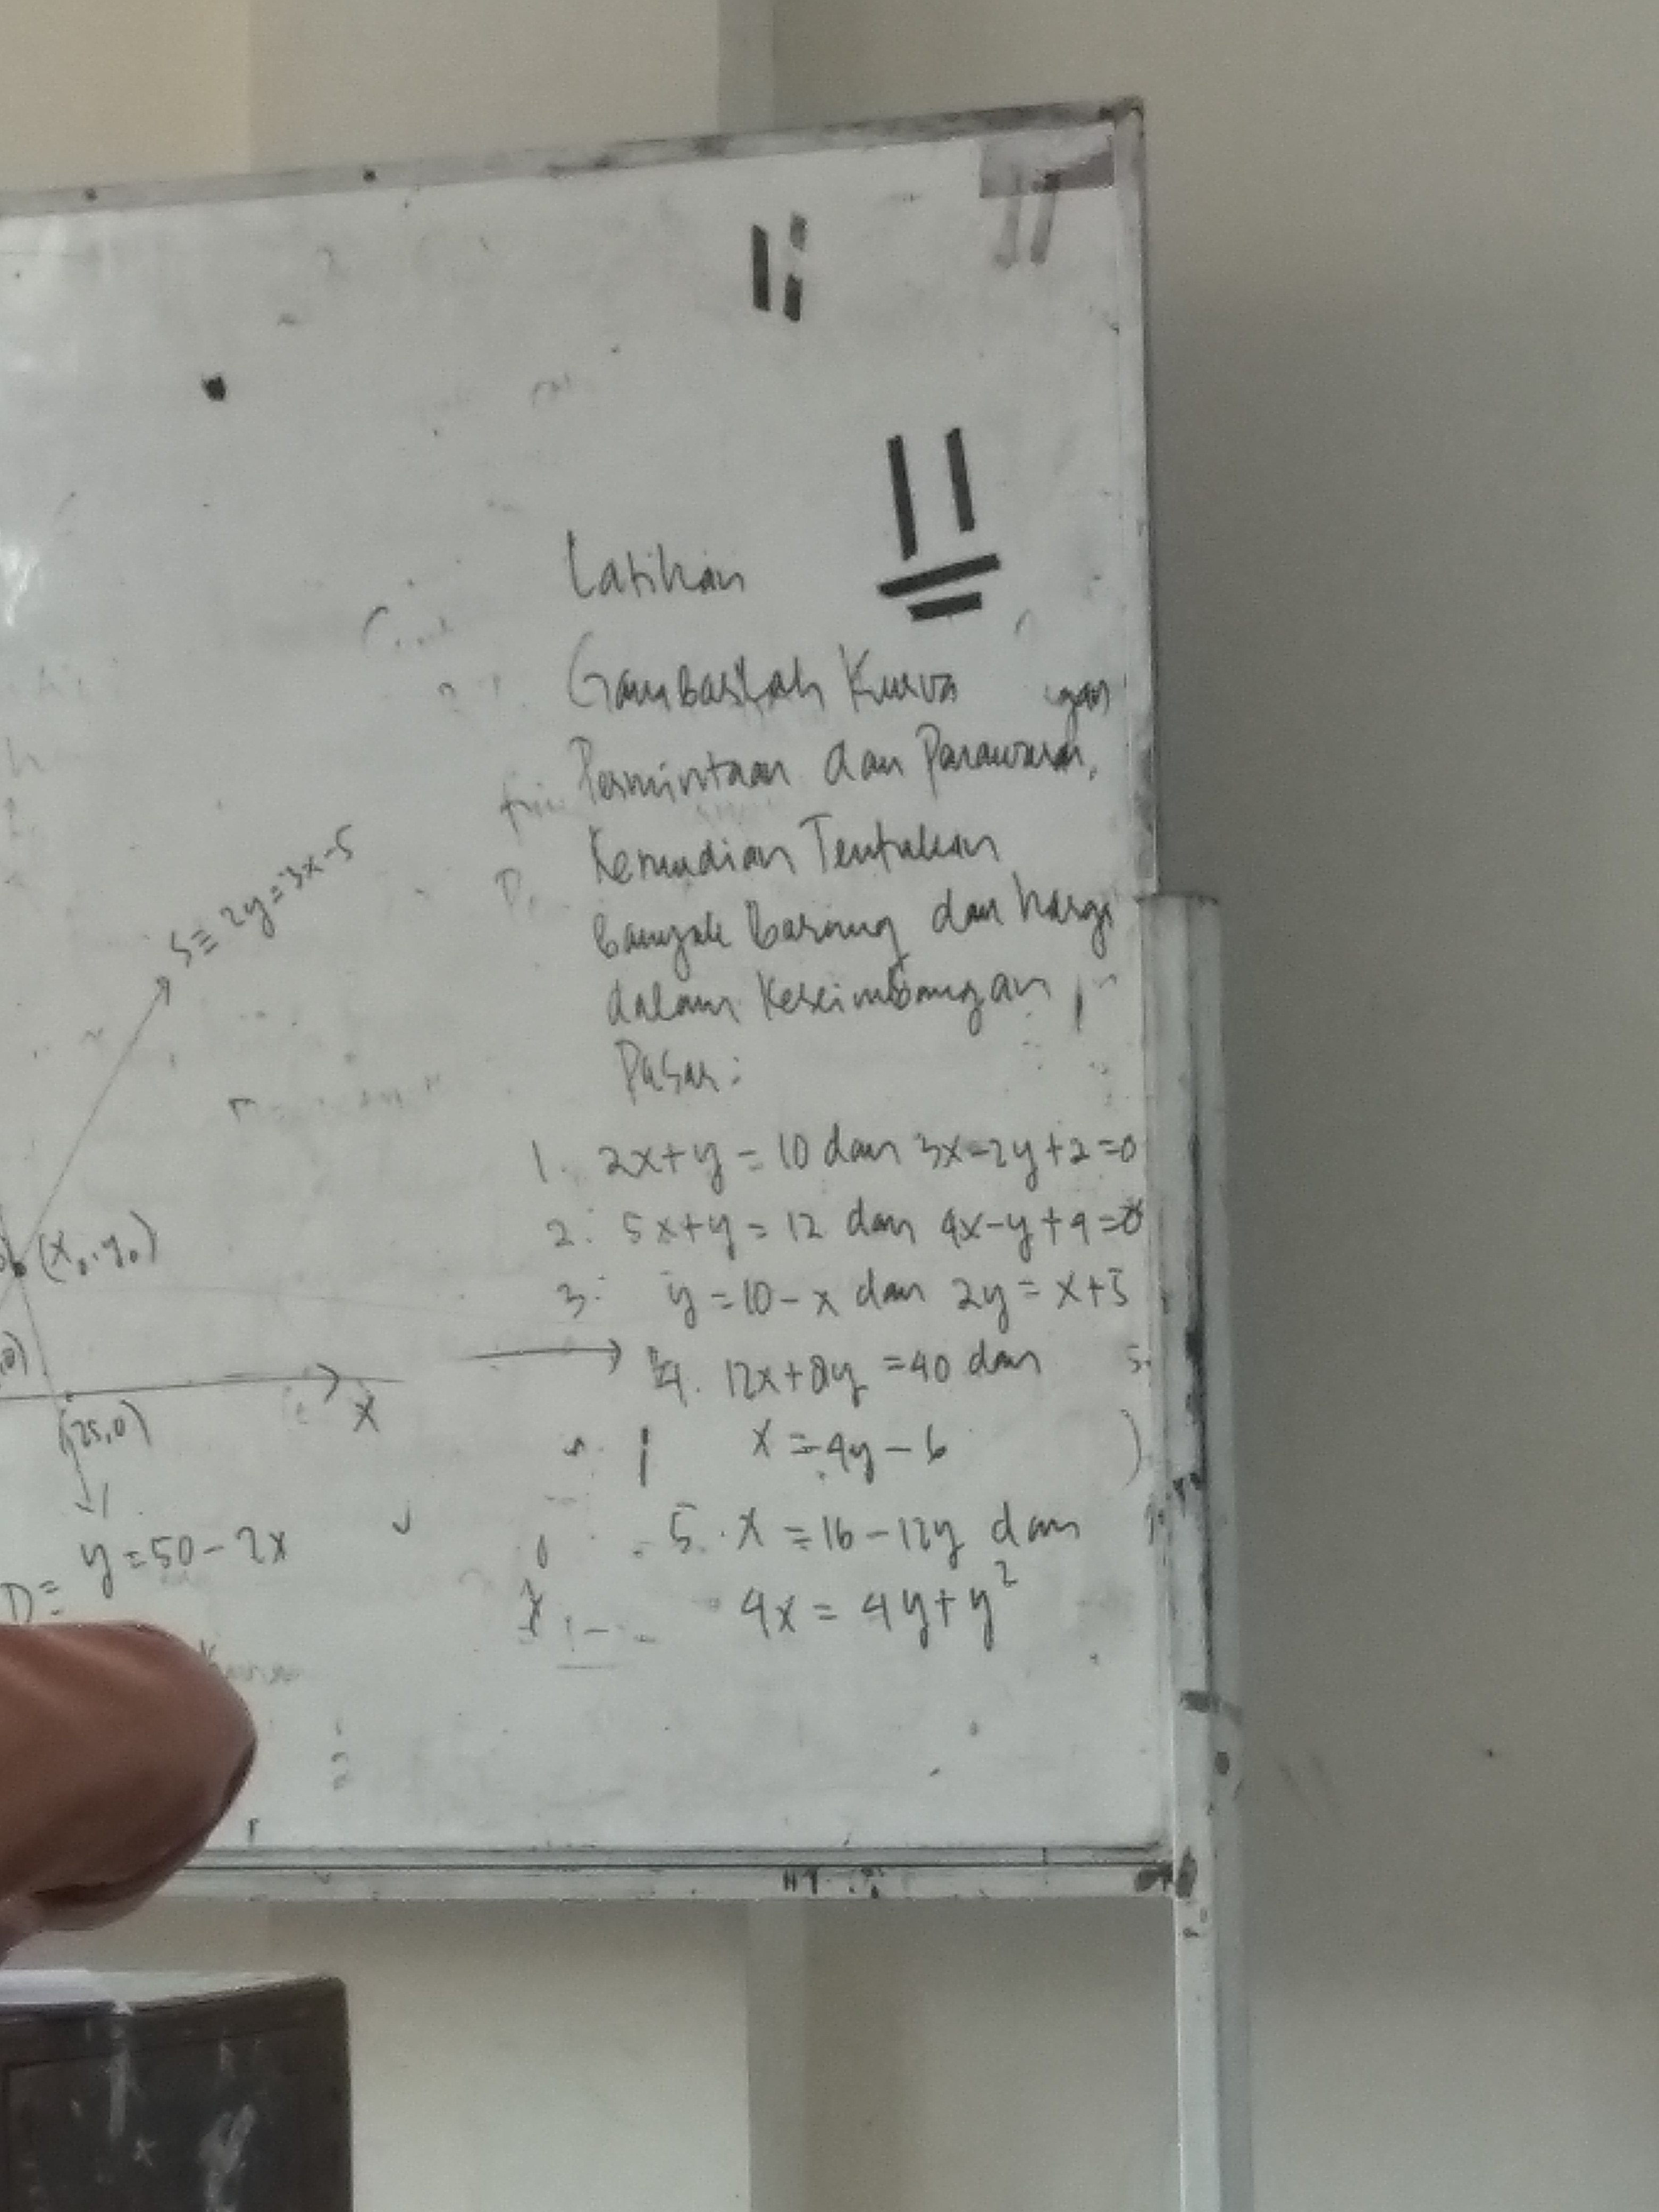 Latihan
Gambarlah Kurva
Permintaan dan Panawaran,
Kemudian Tentukan
banyak barang dan harga
dalam Keseimbangan
Pasar:
1. 2x+y=10 dan 3x-2y+2=0
2. 5x+y=12 dan 4x-y+4=0
3. y=10-x dan 2y=x+5
4. 12x+8y=40 dan
x=4y-6
5. x=16-12y dan
4x=4y+y²
S≡2y=3x-5
(x₀,y₀)
(25,0)
X
D≡ y=50-2x